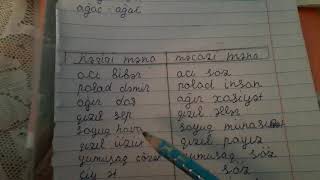 ağac - ağac
həqiqi məna məcazi məna
acı bibər acı söz
polad dəmir polad insan
ağır daş ağır xasiyət
qızıl sep qızıl əllər
soyuq hava soyuq münasibət
qızıl üzük qızıl payız
yumuşaq yumuşaq söz
çiy ət söz